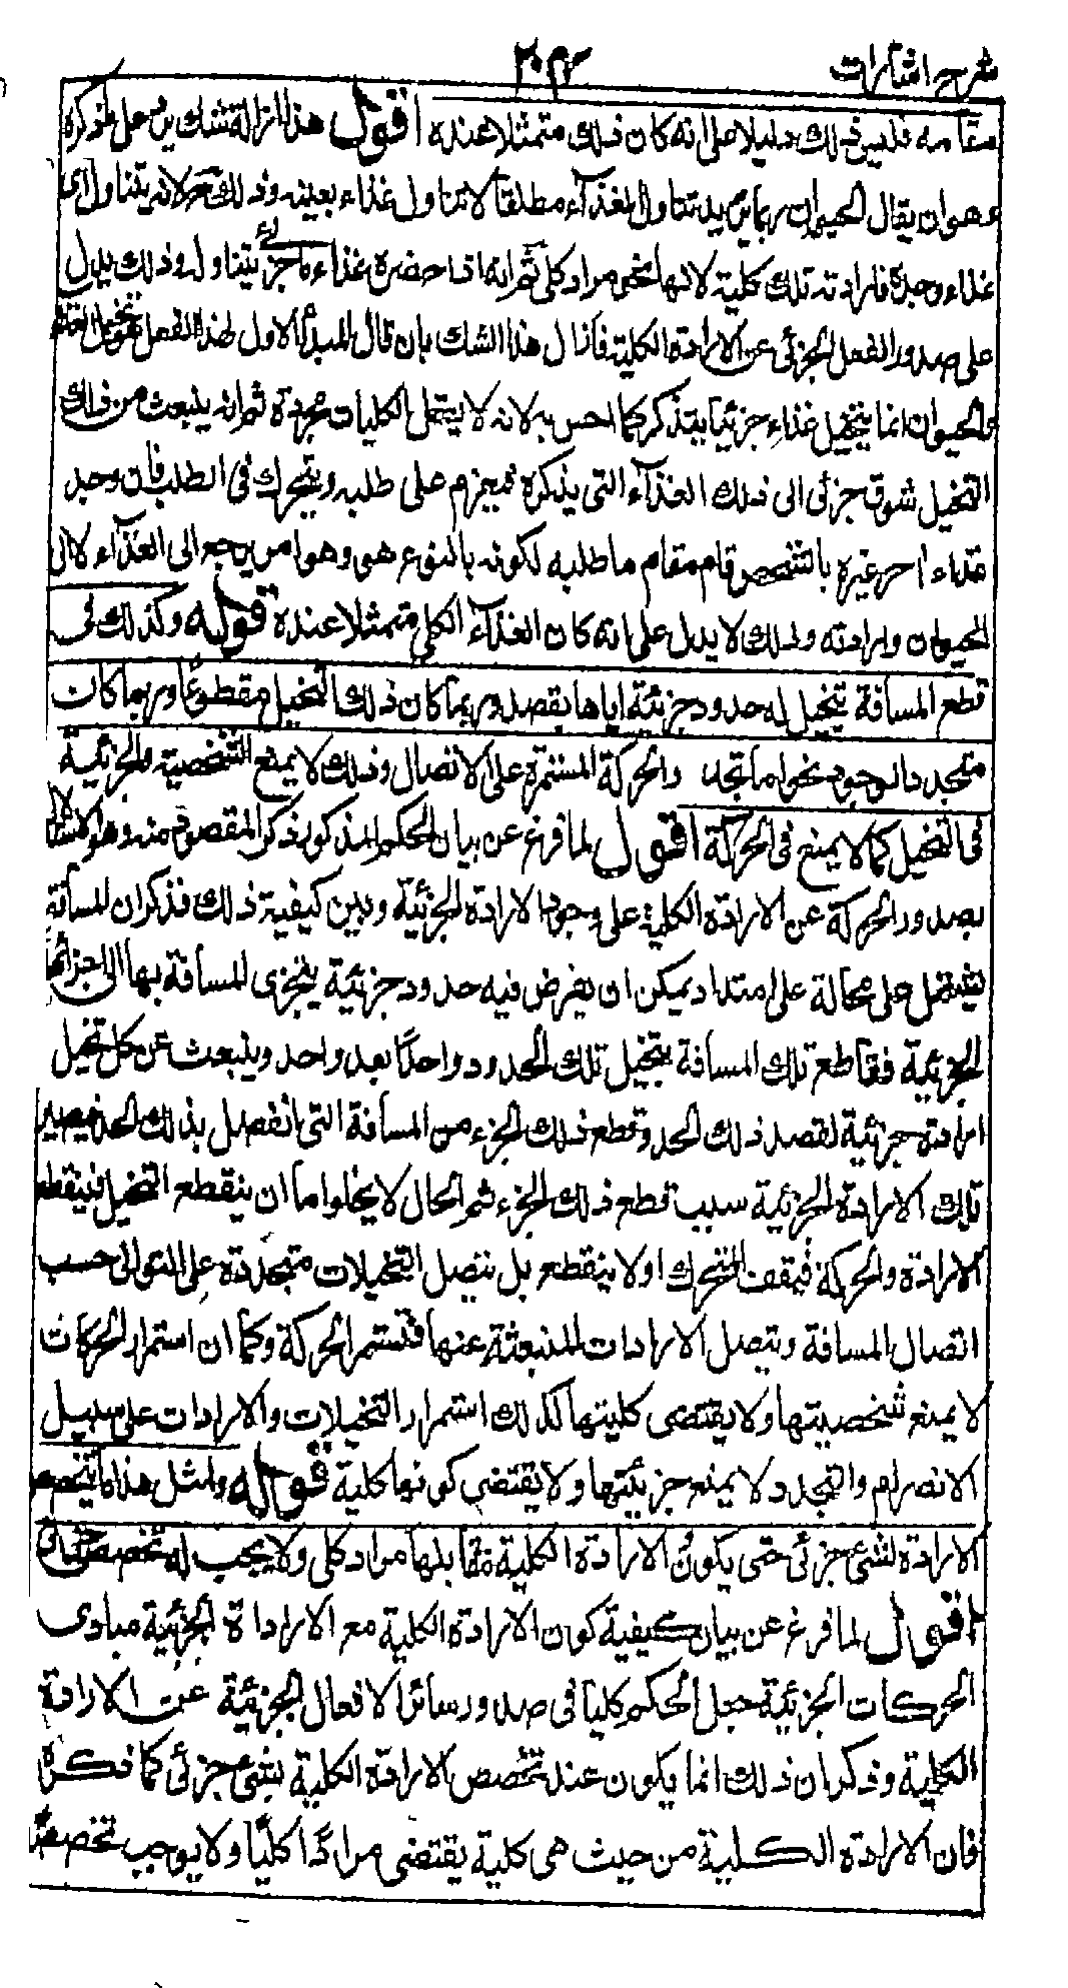 شرح اشارات
٢٠٣
مقامه فليس ذلك دليلا على انه كان ذلك متمثلا عنده اقول هذا ازالة تشك يرد على ما ذكره
وهو ان يقال الحيوان ربما يريد تناول الغذآء مطلقا لا تناول غذاء بعينه وذلك لانه يتناول اى
غذاء وجده فارادته تلك كلية لانها نحو مراد كلى ثم انه اذا حضره غذاء ما جزئى يتناوله وذلك يدل
على صدور الفعل الجزئى عن الارادة الكلية فازال هذا الشك بان قال المبدأ الاول لهذا الفعل هو تخيل الغذاء
والحيوان انما يتخيل غذاء جزئيا يتذكر كما احس به لانه لا يتعقل الكليات مجردة ثم انه ينبعث من ذلك
التخيل شوق جزئى الى ذلك الغذآء التى يذكره فيجزم على طلبه ويتحرك فى الطلب فان وجد
غذاء اخر غيره بالشخص قام مقام ما طلبه لكونه بالنوع هو وهو امر يرجع الى الغذآء لا الى
الحيوان وارادته وذلك لا يدل على انه كان الغذآء الكلى متمثلا عنده قوله وكذلك فى
قطع المسافة يتخيل له حدود جزئية اياها يقصد وربما كان ذلك التخيل مقطوعًا وربما كان
متجدد الوجود نحوا ما تجدد والحركة المستمرة على الاتصال وذلك لا يمنع الشخصية والجزئية
فى التخيل كما لا يمنع فى الحركة اقول لما فرغ عن بيان الحكم المذكور ذكر المقصود منه وهو الاستدلال
بصدور الحركة عن الارادة الكلية على وجود الارادة الجزئية وبين كيفية ذلك فذكر ان المسافة
تشتمل على محالة على امتداد يمكن ان يفرض فيه حدود جزئية يتجزى المسافة بها الى اجزائها
الجزئية فقاطع تلك المسافة يتخيل تلك الحدود واحدًا بعد واحد وينبعث عن كل تخيل
ارادة جزئية لقصد ذلك الحد وقطع ذلك الجزء من المسافة التى انفصل بذلك الحد فيصير
تلك الارادة الجزئية سبب قطع ذلك الجزء ثم الحال لا يخلوا ما ان ينقطع التخيل فينقطع
الارادة والحركة فيقف المتحرك او لا ينقطع بل يتصل التخيلات متجددة على التوالى حسب
اتصال المسافة ويتصل الارادات المنبعثة عنها فتستمر الحركة وكما ان استمرار الحركات
لا يمنع شخصيتها ولا يقتضى كليتها كذلك استمرار التخيلات والارادات على سبيل
الانصرام والتجدد لا يمنع جزئيتها ولا يقتضي كونها كلية قوله ولمثل هذا ما يتخصص
الارادة لشئ جزئى حتى يكون الارادة الكلية مقابلها مراد كلى ولا يجب له تخصص جزئى
اقول لما فرغ عن بيان كيفية كون الارادة الكلية مع الارادة الجزئية مبادى
الحركات الجزئية جعل الحكم كليا فى صدور سائر الافعال الجزئية عن الارادة
الكلية وذكر ان ذلك انما يكون عند تخصص الارادة الكلية بشئ جزئى كما ذكره
فان الارادة الكلية من حيث هى كلية يقتضى مرادًا كليًا ولا يوجب تخصصًا